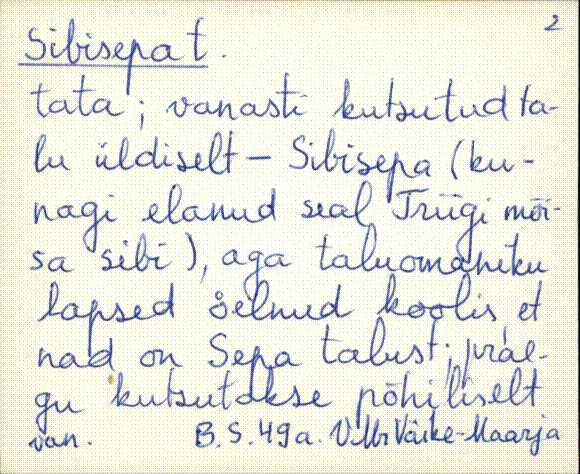 2
Sibisepa t.
tata; vanasti kutsutud ta-
lu üldiselt – Sibisepa (ku-
nagi elanud seal Triigi mõi-
sa sibi), aga taluomaniku
lapsed öelnud koolis, et
nad on Sepa talust; prae-
gu kutsutakse põhiliselt
van. B. S. 49a. VMr Väike-Maarja